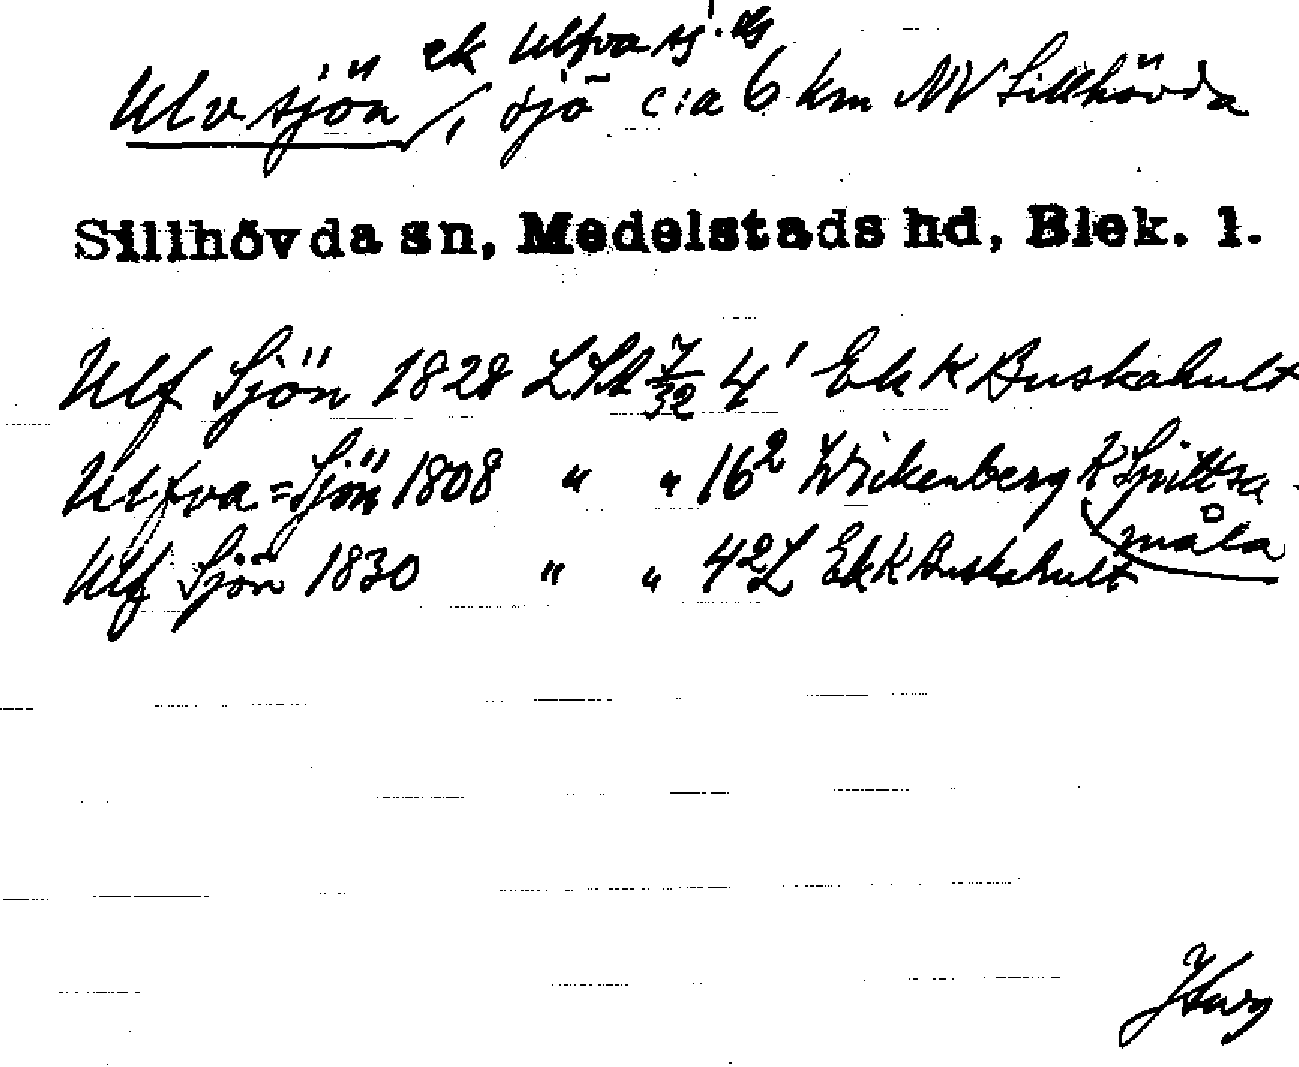 ek Ulfva sj.
Ulvsjön, sjö c:a 6 km NV Sillhövda
Sillhövda sn, Medelstads hd, Blek. l.
Ulf Sjön 1828 LSA 7/32 4' Ek K Buskahult
Ulfva=Sjön 1808 " " 16² Wickenberg K Spittsa-
måla
Ulf Sjön 1830 " " 4² L Ek K Buskahult